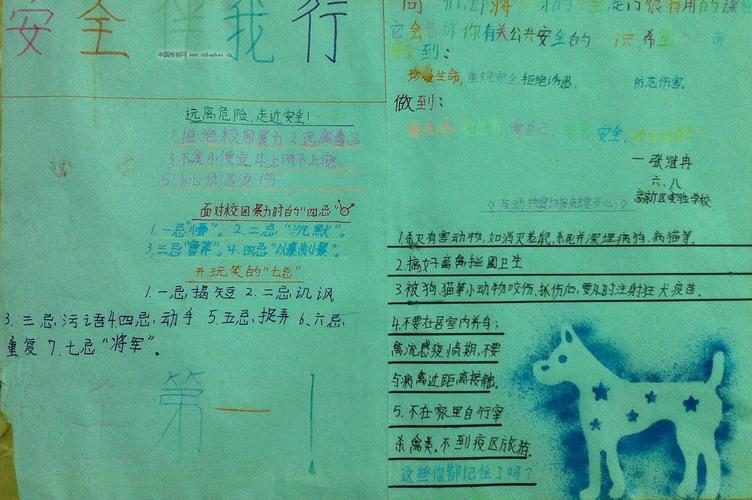 安全伴我行
中国板报网 www.cnbanbao.cn
远离危险,走近安全!
1.拒绝校园暴力 2.远离毒品
3.不贪小便宜 4.上网不上瘾
5.小心
面对校园暴力时的“四忌”
1.一忌“ ”。2.二忌“沉默”。
3.三忌“鲁莽”。4.四忌“以暴制暴”。
开玩笑的“七忌”
1.一忌,揭短 2.二忌,讥讽
3.三忌,污语4.四忌,动手 5.五忌,捉弄 6.六忌,
重复 7.七忌“将军”。
全第一!
们,即将 很有用的课
它会告诉你有关公共安全的 识,希望
到:
珍爱生命,重视安全 拒绝诱惑, 防范伤害。
做到:
自己, 安全,
—张继冉
六、八
高新区实验学校
与动物
1.杀灭有害动物,如消灭老鼠,杀死并深埋病狗、病猫等。
2.搞好畜禽栏圈卫生
3.被狗、猫等小动物咬伤、抓伤后,要及时注射狂犬疫苗。
4.不要在居室内养鸟;
禽流感疫情期,不要
与病禽近距离接触。
5.不在家里自行宰
杀禽类,不到疫区旅游。
这些你都记住了吗?